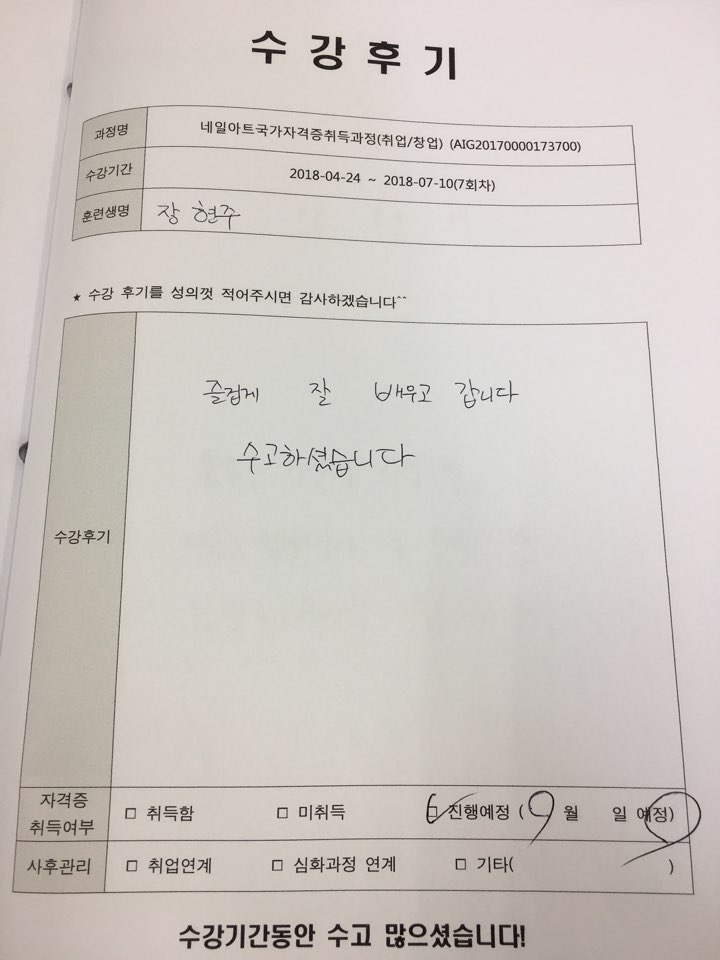 수강후기
과정명 네일아트국가자격증취득과정(취업/창업) (AIG20170000173700)
수강기간 2018-04-24 ~ 2018-07-10(7회차)
훈련생명 장 현주
★ 수강 후기를 성의껏 적어주시면 감사하겠습니다^^
즐겁게 잘 배우고 갑니다
수고하셨습니다
수강후기
자격증
취득여부 □ 취득함 □ 미취득 □ 진행예정 ( 9 월 일 예정)
사후관리 □ 취업연계 □ 심화과정 연계 □ 기타( )
수강기간동안 수고 많으셨습니다!